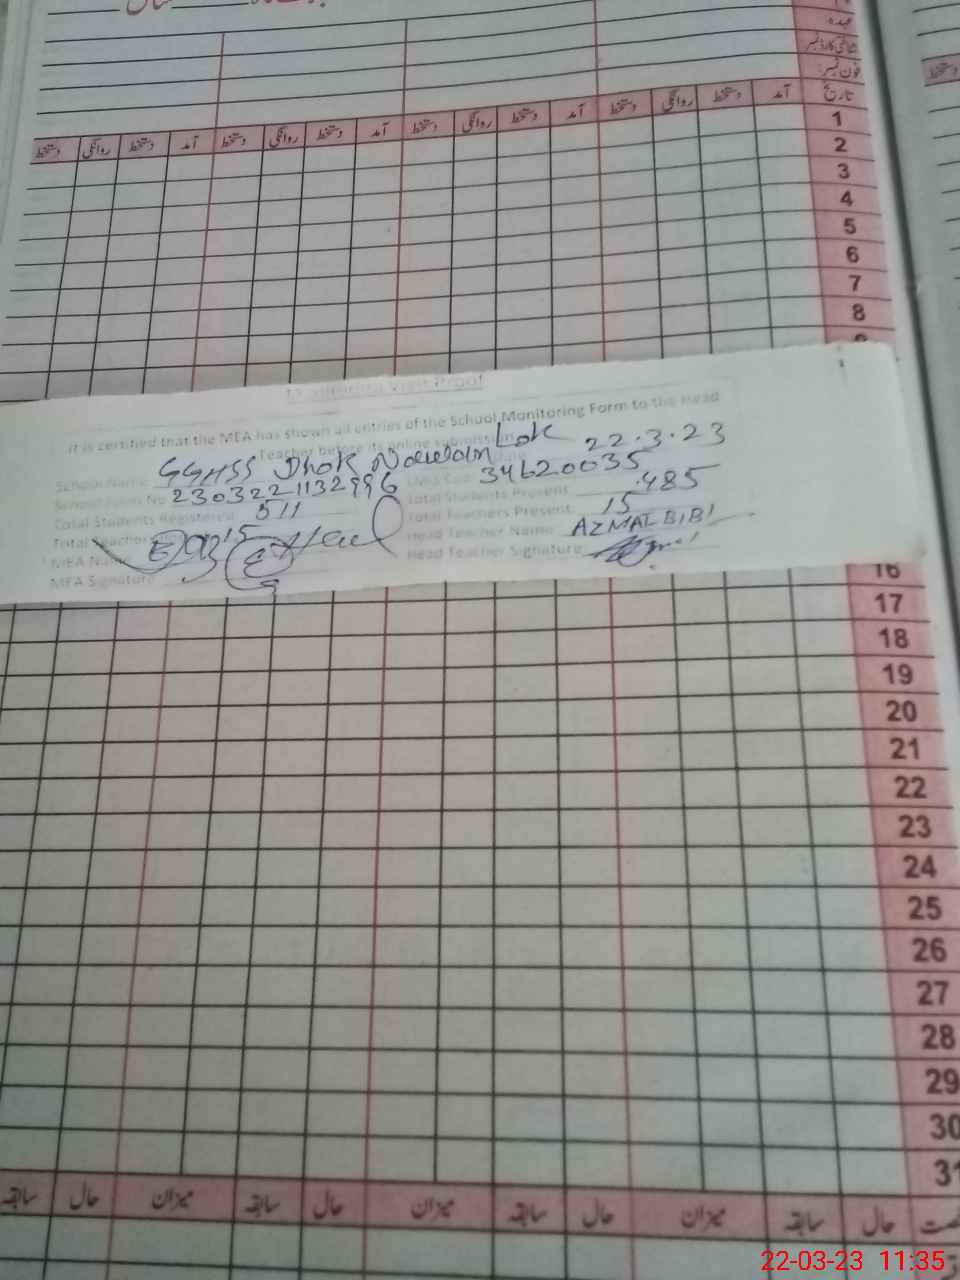 عہدہ
شناختی کارڈ نمبر
فون نمبر
تاریخ آمد دستخط روانگی دستخط آمد دستخط روانگی دستخط آمد دستخط روانگی دستخط آمد دستخط روانگی دستخط
دستخط
1
2
3
4
5
6
7
8
Visit Proof
It is certified that the MEA has shown all entries of the School Monitoring Form to the Head
Teacher before its online submission
22.3.23
School Name GGHSS Dhok Nawan Lok
34620035
School Form No 2303221132996
Total Students Present 485
Total Students Registered 511
Total Teachers Present 15
Total Teachers 15
Head Teacher Name AZMAT BIBI
MEA Name
Head Teacher Signature
MEA Signature
16
17
18
19
20
21
22
23
24
25
26
27
28
29
30
31
حال سابقہ میزان حال سابقہ میزان حال سابقہ میزان حال سابقہ
22-03-23 11:35